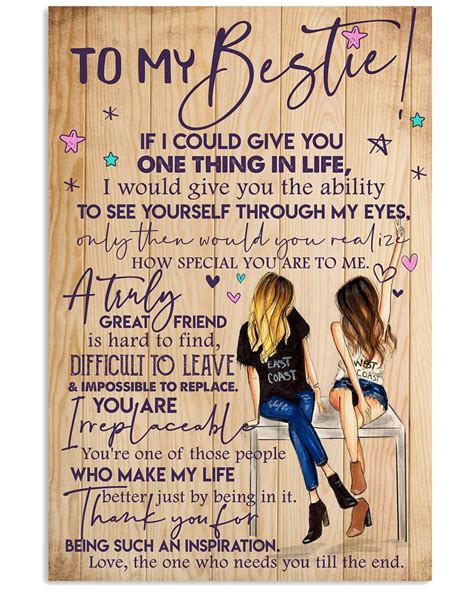 TO MY Bestie!
IF I COULD GIVE YOU
ONE THING IN LIFE,
I would give you the ability
TO SEE YOURSELF THROUGH MY EYES,
only then would you realize
HOW SPECIAL YOU ARE TO ME.
A truly
GREAT FRIEND
is hard to find,
DIFFICULT TO LEAVE
& IMPOSSIBLE TO REPLACE.
YOU ARE
Irreplaceable
You're one of those people
WHO MAKE MY LIFE
better just by being in it.
Thank you for
BEING SUCH AN INSPIRATION.
Love, the one who needs you till the end.
EAST
COAST
WEST
COAST